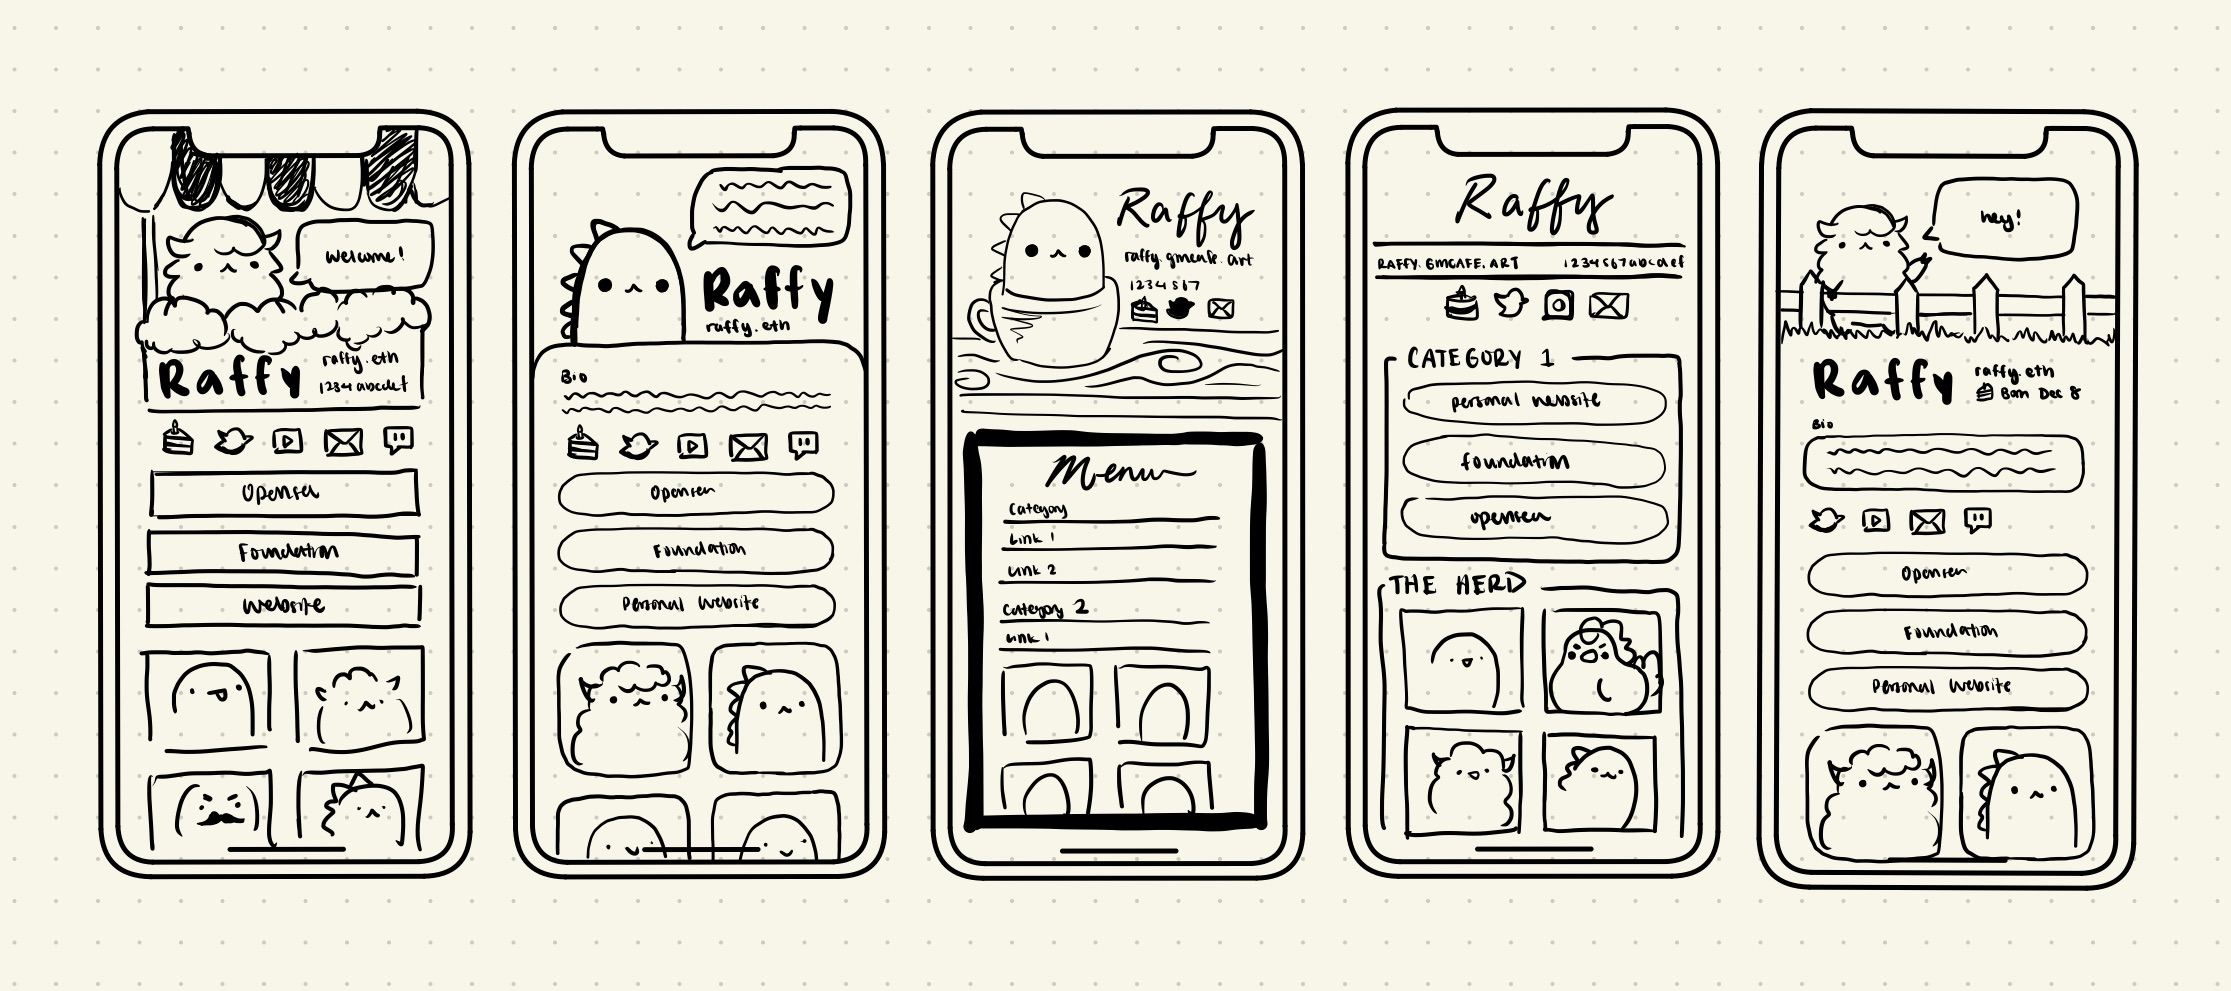 Welcome!
Raffy
raffy.eth
1234abcdef
Opensea
Foundation
Website
Raffy
raffy.eth
Bio
Opensea
Foundation
Personal Website
Raffy
raffy.gmcafe.art
1234567
Menu
Category
Link 1
Link 2
Category 2
Link 1
Raffy
RAFFY.GMCAFE.ART 1234567abcdef
CATEGORY 1
personal website
foundation
opensea
THE HERD
hey!
Raffy
raffy.eth
Born Dec 8
Bio
Opensea
Foundation
Personal Website